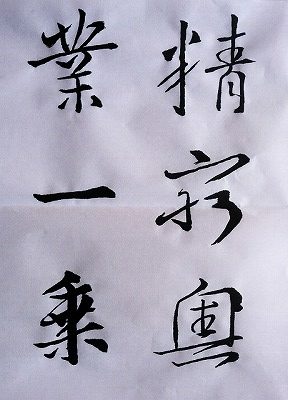 精窮奥
業一乘